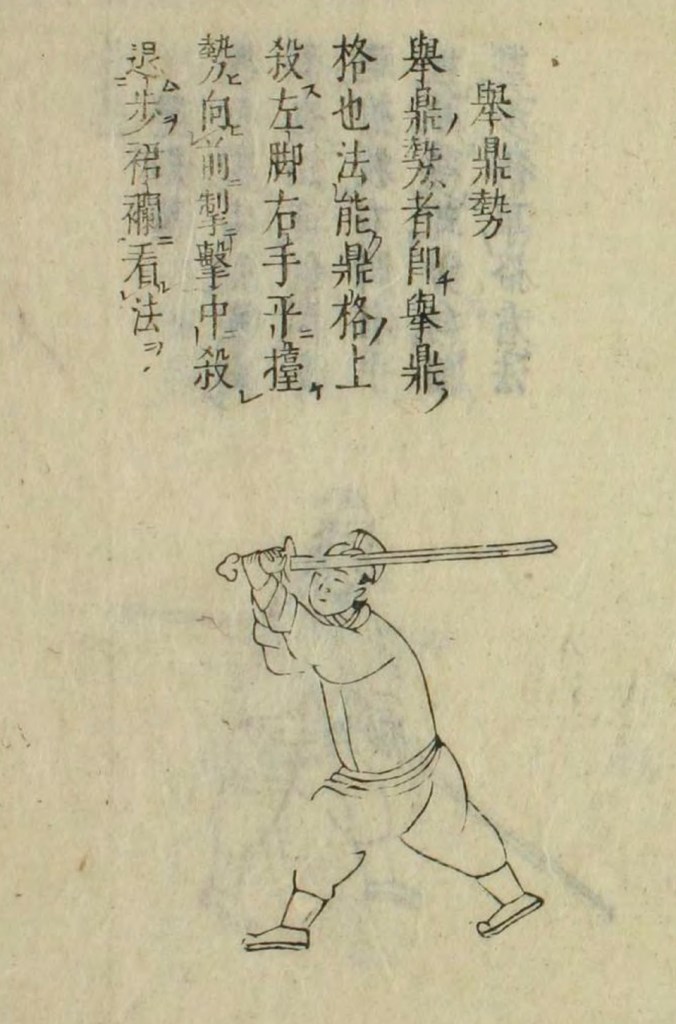 舉鼎勢
舉鼎勢者卽舉鼎
格也法能鼎格上
殺左脚右手平擡
勢向前掣擊中殺
退步裙襴看法